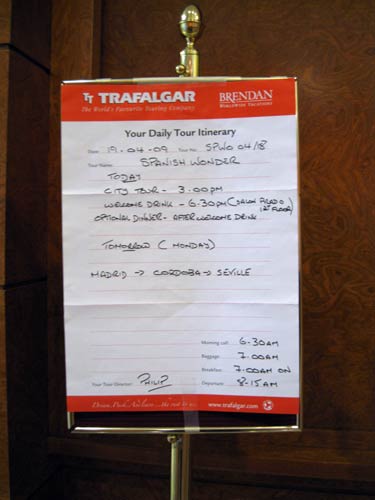 TT TRAFALGAR
The World's Favourite Touring Company
BRENDAN
WORLDWIDE VACATIONS
Your Daily Tour Itinerary
Date: 19-04-09 Tour No: SPWO 04/18
Tour Name: SPANISH WONDER
TODAY
CITY TOUR - 3.00PM
WELCOME DRINK - 6.30PM (SALON PRADO 1ST FLOOR)
OPTIONAL DINNER - AFTER WELCOME DRINK
TOMORROW (MONDAY)
MADRID → CORDOBA → SEVILLE
Morning call: 6-30AM
Baggage: 7.00AM
Breakfast: 7.00AM ON
Your Tour Director: PHILIP Departure: 8-15AM
www.trafalgar.com